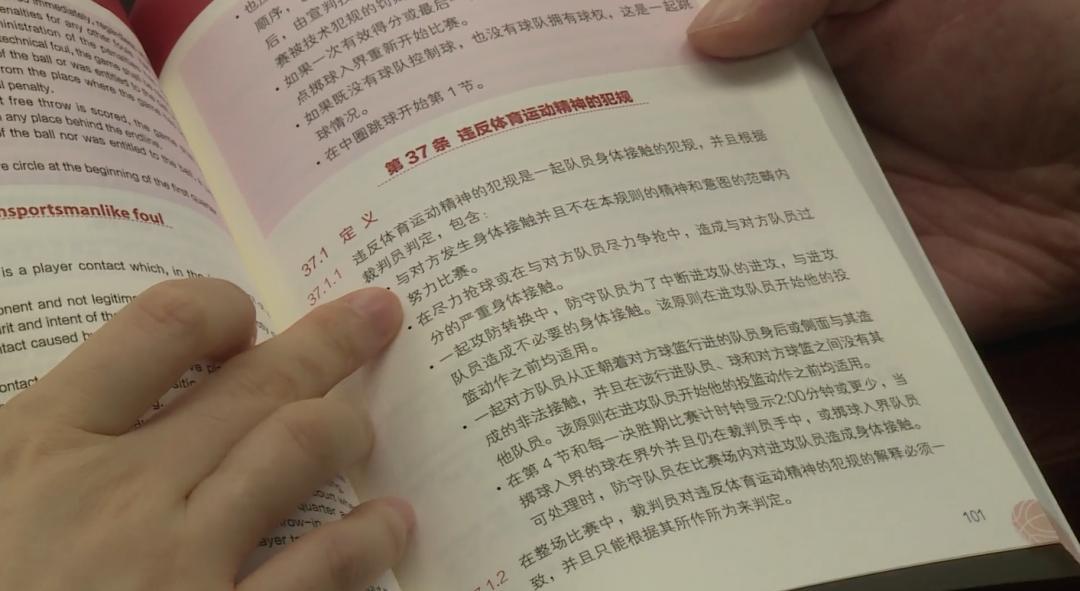 immediately, regardless
enalties for any other fou
ministration of the penal
technical foul, the game s
of the ball or was entitled to the
from the place where the gam
l penalty.
t free throw is scored, the game
any place behind the endline.
of the ball nor was entitled to the ball
e circle at the beginning of the first quarter
nsportsmanlike foul
is a player contact which, in the
onent and not legitim
irit and intent of the
ntact caused b
ontact
顺序,
后,由宣判技
赛被技术犯规的罚
· 如果一次有效得分或最后
点掷球入界重新开始比赛。
· 如果既没有球队控制球,也没有球队拥有球权,这是一起跳
球情况。
· 在中圈跳球开始第 1 节。
第 37 条 违反体育运动精神的犯规
37.1 定 义
37.1.1 违反体育运动精神的犯规是一起队员身体接触的犯规,并且根据
裁判员判定,包含:
· 与对方发生身体接触并且不在本规则的精神和意图的范畴内
努力比赛。
· 在尽力抢球或在与对方队员尽力争抢中,造成与对方队员过
分的严重身体接触。
· 一起攻防转换中,防守队员为了中断进攻队的进攻,与进攻
队员造成不必要的身体接触。该原则在进攻队员开始他的投
篮动作之前均适用。
· 一起对方队员从正朝着对方球篮行进的队员身后或侧面与其造
成的非法接触,并且在该行进队员、球和对方球篮之间没有其
他队员。该原则在进攻队员开始他的投篮动作之前均适用。
· 在第 4 节和每一决胜期比赛计时钟显示2:00分钟或更少,当
掷球入界的球在界外并且仍在裁判员手中,或掷球入界队员
可处理时,防守队员在比赛场内对进攻队员造成身体接触。
7.1.2 在整场比赛中,裁判员对违反体育运动精神的犯规的解释必须一
致,并且只能根据其所作所为来判定。
101